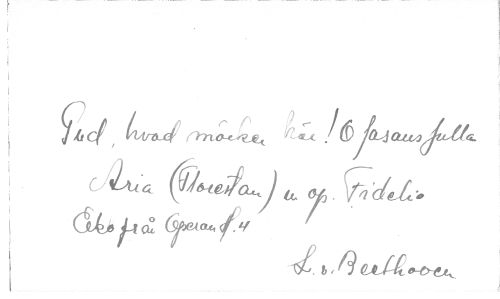 Gud, hvad mörker här! O fasansfulla
Aria (Florestan) u op. Fidelio
Eko från Operan H. 4
L. v. Beethoven